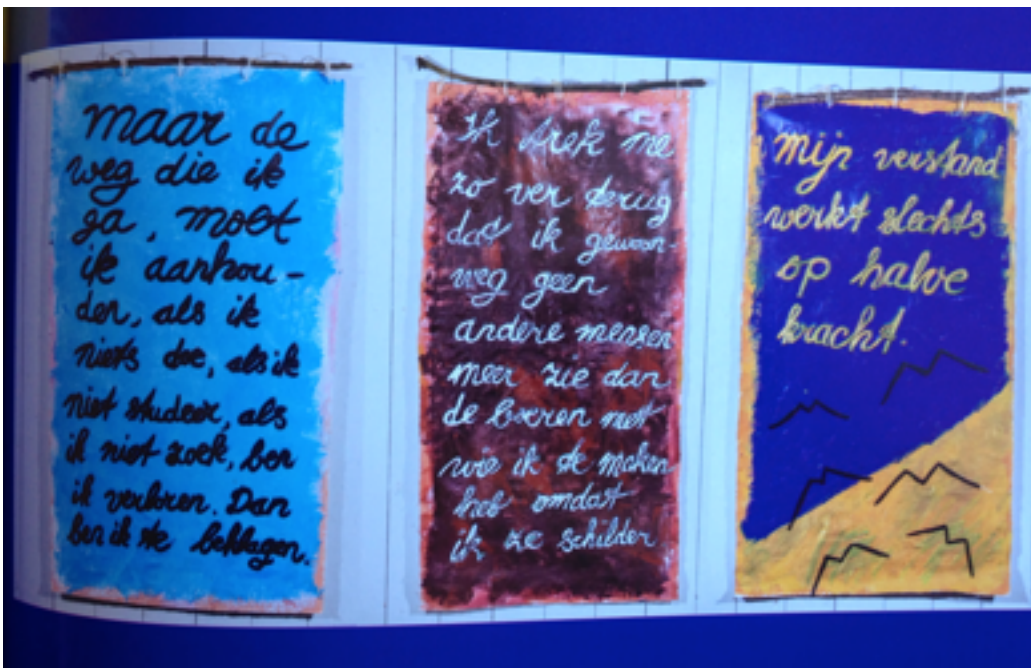 maar de
weg die ik
ga, moet
ik aanhou-
den, als ik
niets doe, als ik
niet studeer, als
ik niet zoek, ben
ik verloren. Dan
ben ik te beklagen.
Ik trek me
zo ver terug
dat ik gewoon-
weg geen
andere mensen
meer zie dan
de boeren met
wie ik te maken
heb omdat
ik ze schilder
mijn verstand
werkt slechts
op halve
kracht.